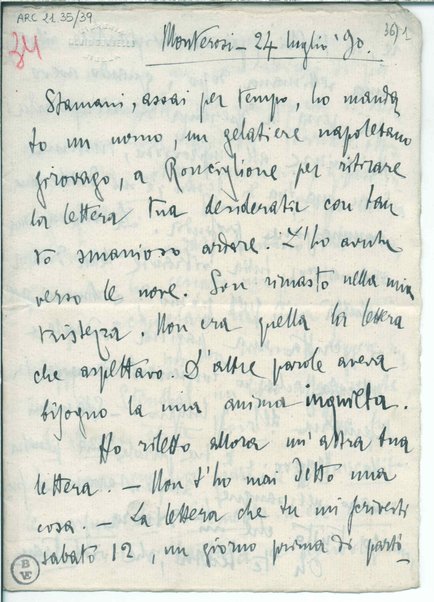 ARC 21.35/39
34
36/1
Monterosi – 24 luglio '90.
Stamani, assai per tempo, ho manda
to un uomo, un gelatiere napoletano
girovago, a Ronciglione per ritirare
la lettera tua desiderata con tan
to smanioso ardore. L'ho avuta
verso le nove. Son rimasto nella mia
tristezza. Non era quella la lettera
che aspettavo. D'altre parole aveva
bisogno la mia anima inquieta.
Ho riletto allora un'altra tua
lettera. – Non t'ho mai detto una
cosa. – La lettera che tu mi scrivesti
sabato 12, un giorno prima di parti
BVE